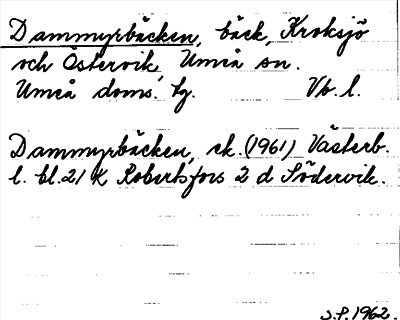 Dammyrbäcken, bäck, Kroksjö
och Östervik, Umeå sn.
Umeå doms. hg. Vb. l.
Dammyrbäcken, ek. (1961) Västerb.
l. bl. 21 K Robertsfors 2 d Södervik.
S.P. 1962.